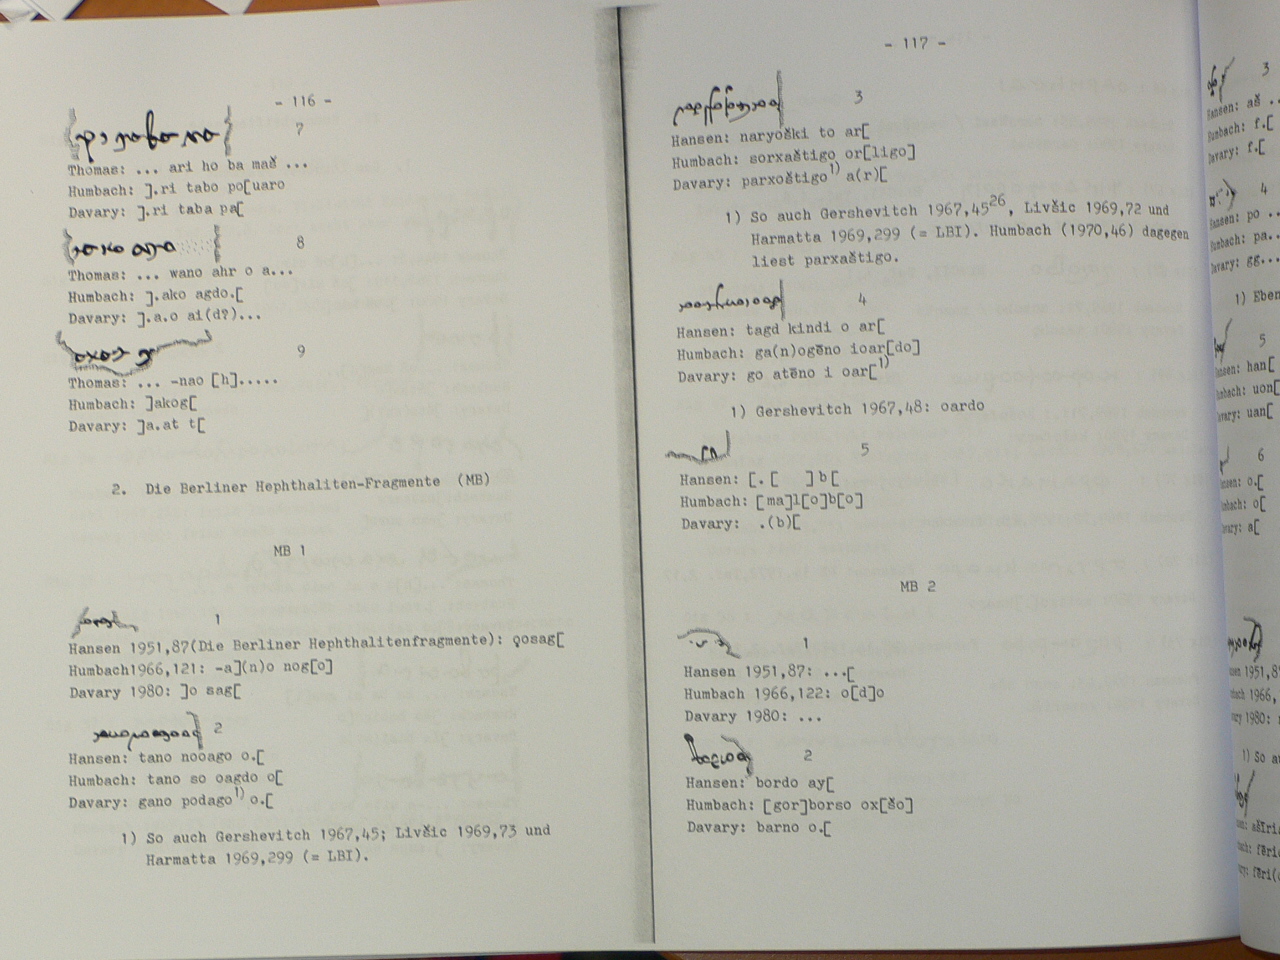 - 116 -
7
Thomas: ... ari ho ba maš ...
Humbach: ].ri tabo po[uaro
Davary: ].ri taba pa[
8
Thomas: ... wano ahr o a...
Humbach: ].ako agdo.[
Davary: ].a.o ai(d?)...
9
Thomas: ... -nao [h].....
Humbach: ]akog[
Davary: ]a.at t[
2. Die Berliner Hephthaliten-Fragmente (MB)
MB 1
1
Hansen 1951,87(Die Berliner Hephthalitenfragmente): ϙosag[
Humbach1966,121: -a](n)o nog[o]
Davary 1980: ]o sag[
2
Hansen: tano nooago o.[
Humbach: tano so oagdo o[
Davary: gano podago1) o.[
1) So auch Gershevitch 1967,45; Livšic 1969,73 und
Harmatta 1969,299 (= LBI).
- 117 -
3
Hansen: naryoški to ar[
Humbach: sorxaštigo or[ligo]
Davary: parxoštigo1) a(r)[
1) So auch Gershevitch 1967,4526, Livšic 1969,72 und
Harmatta 1969,299 (= LBI). Humbach (1970,46) dagegen
liest parxaštigo.
4
Hansen: tagd kindi o ar[
Humbach: ga(n)ogēno ioar[do]
Davary: go atēno i oar[1)
1) Gershevitch 1967,48: oardo
5
Hansen: [. [ ]b[
Humbach: [ma]l[o]b[o]
Davary: .(b)[
MB 2
1
Hansen 1951,87: ...[
Humbach 1966,122: o[d]o
Davary 1980: ...
2
Hansen: bordo ay[
Humbach: [gor]borso ox[šo]
Davary: barno o.[
3
Hansen: aš ..
Humbach: f.[
Davary: f.[
4
Hansen: po ..
pa..
gg...
1) Eben
5
han[
uon[
uan[
6
o.[
o[
a[
1) So au